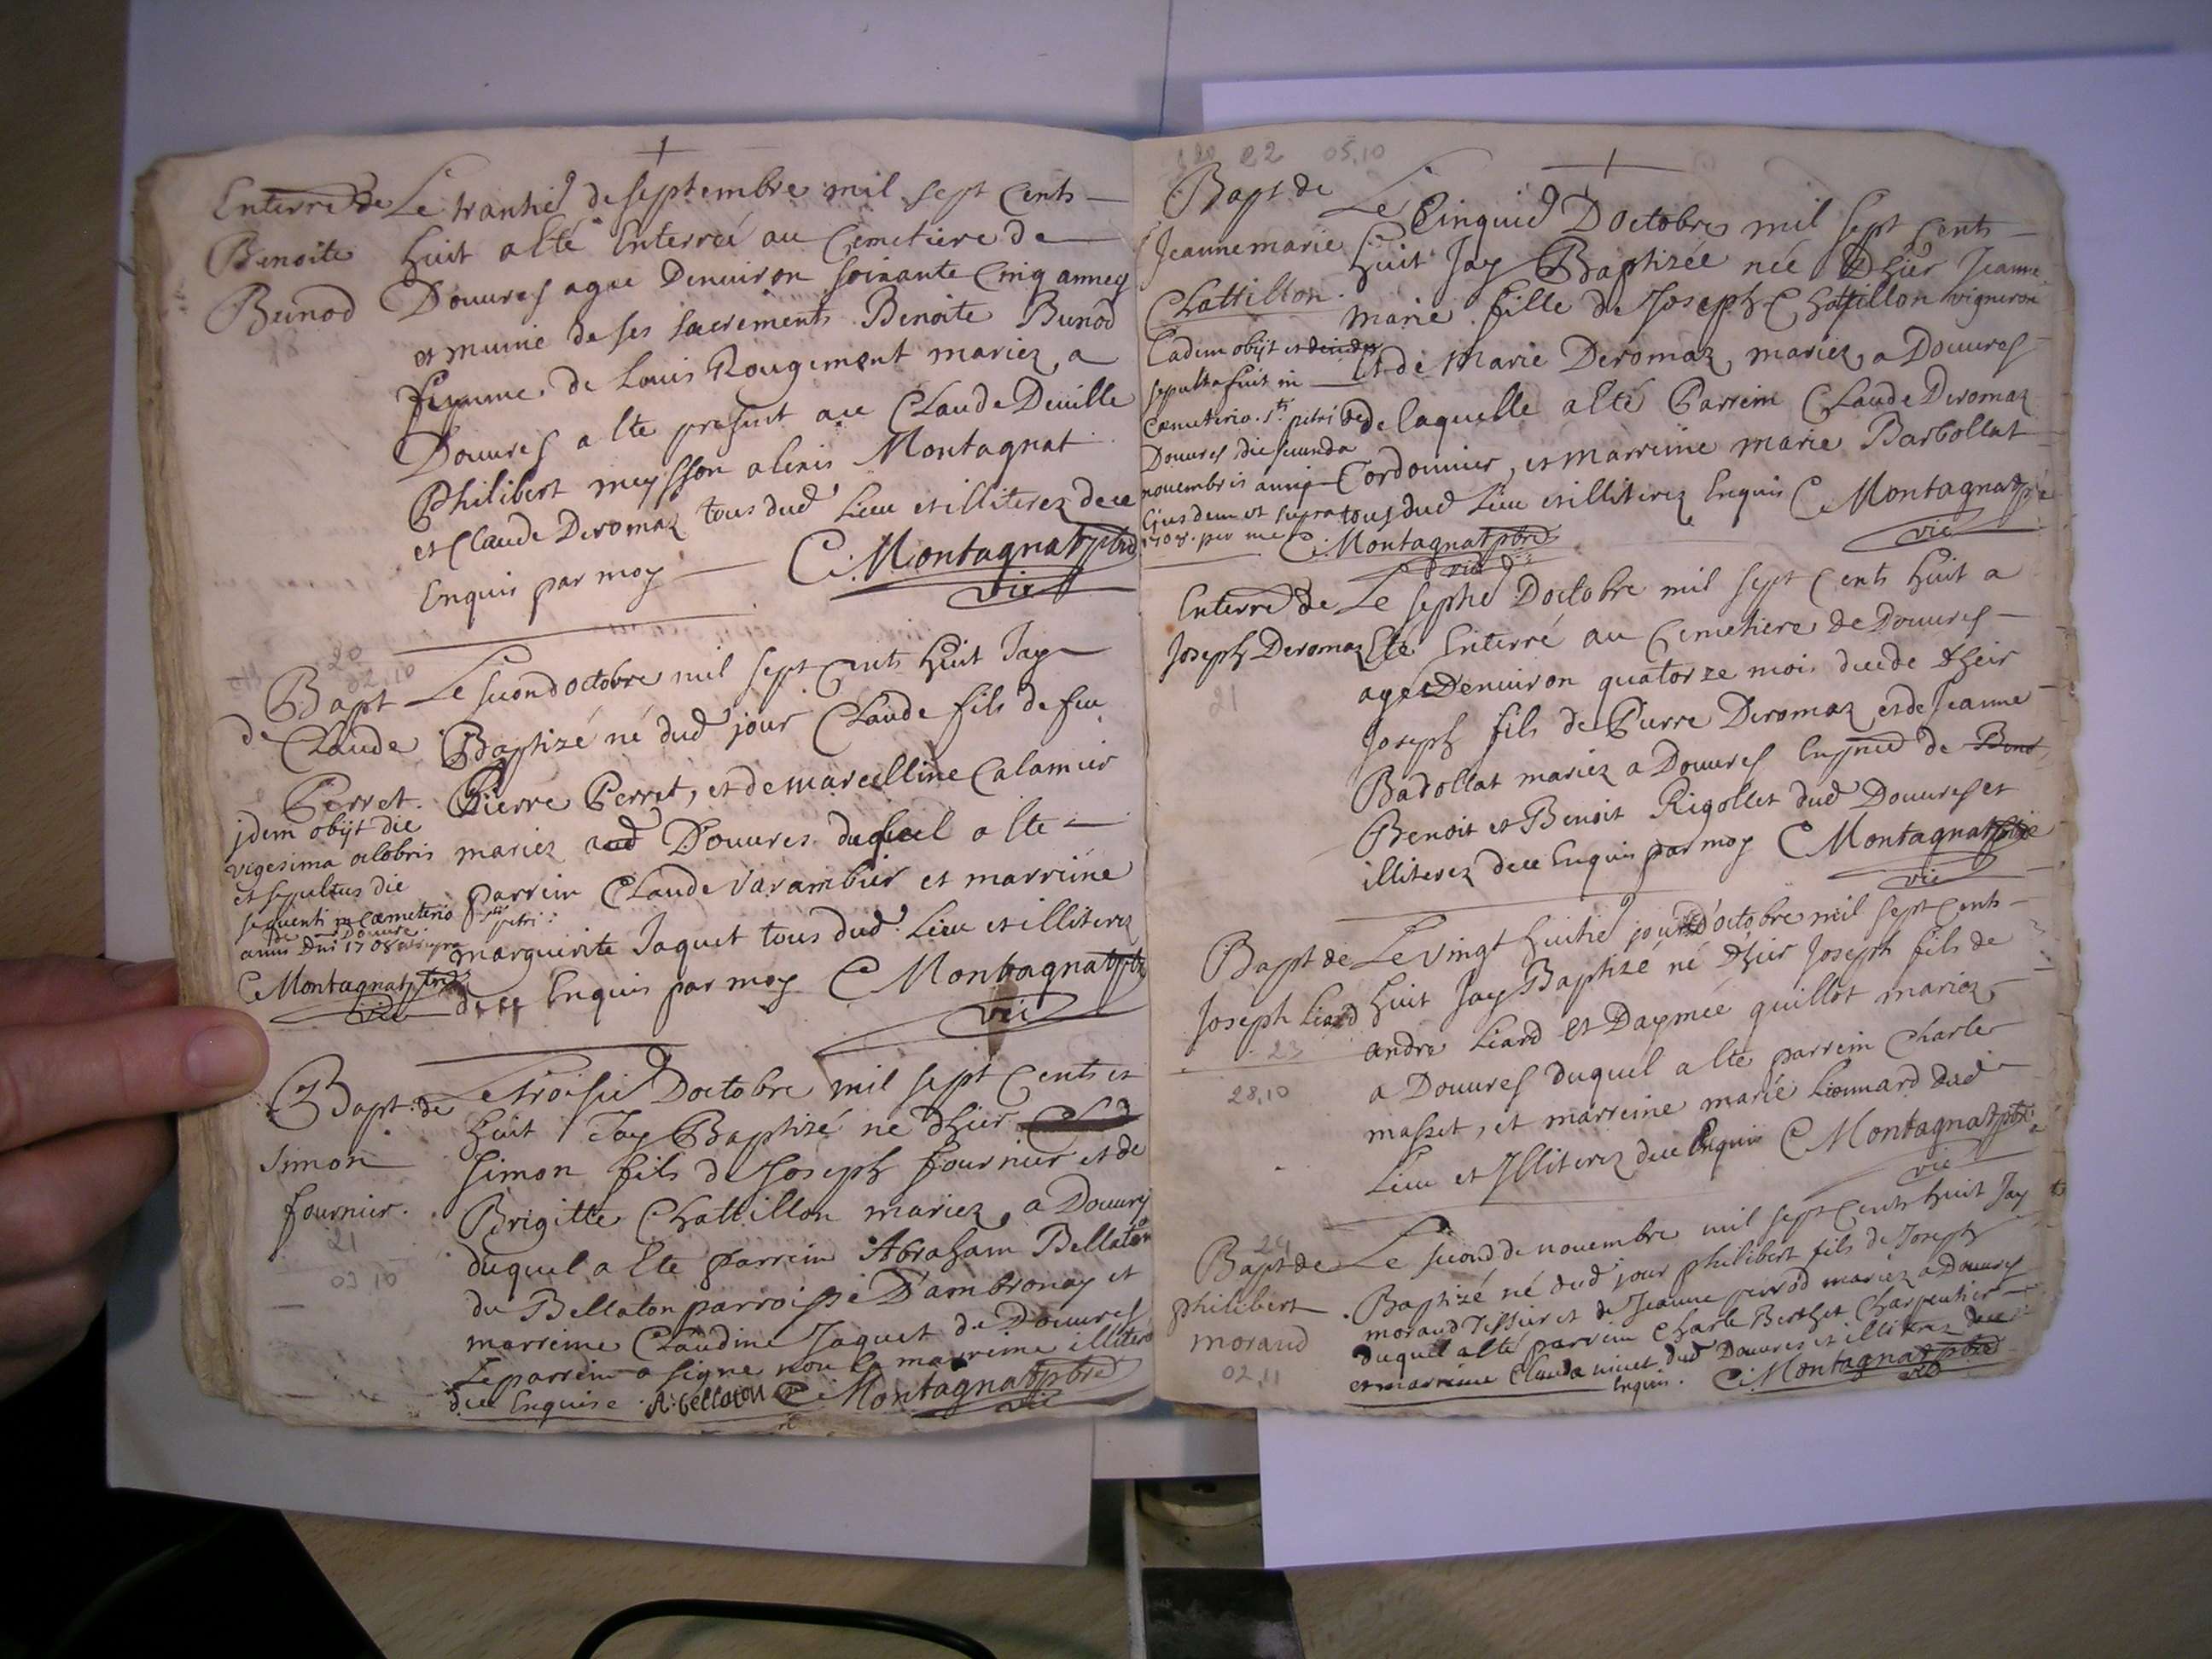 Enterre de
Benoite
Bunod
Le trantie de septembre mil sept Cents
huit a esté Enterreé au Cemetiere de
Douures agee Denuiron soixante Cinq annees
et munie de ses sacrements Benoite Bunod
femme de Louis Rougemont mariez a
Douures a Ete present a Claude Deuille
Philibert meysson alexis Montagnat
et Claude Deromaz tous dud Lieu et illiterez de ce
Enquis par moy C. Montagnat pbre
vic
20
02,10
Bapt
de Claude
Perret.
jdem obijt die
vigesima octobris
et sepultus die
sequenti in Cæmeterio sti petri
de Douure
anno Dni 1708
C Montagnat pbre
vic
Le second octobre mil sept Cents huit Jay
Baptizé né dud jour Claude fils de feu
Pierre Perret, et de marcelline Calamier
mariez aud Douures duquel a Ete
parrein Claude Varambier et marreine
marguerite Jaquet tous dud Lieu et illiterez
de ce Enquis par moy C Montagnat pbre
vic
Bapt. de
Simon
fournier.
21
03,10
Le troisie Doctobre mil sept Cents et
huit Jay Baptizé ne dhier
Simon fils de Joseph fournier et de
Brigitte Chattillon mariez a Douures
duquel a Ete parrein Abraham Bellaton
du Bellaton parroisse D'ambronay et
marreine Claudine Jaquet de Douures
Le parrein a signe non la marreine illiteré
de ce Enquise A. bellaton C. Montagnat pbre
vic
22 05,10
Bapt de
Jeanne marie
Chattillon.
Eadem obijt et
sepulta fuit in
Cæmeterio sti petri de
Douures die secunda
nouembris anni
Ejusdem ut supra
1708. per me C. Montagnat pbre
vic
Le Cinquie D'octobre mil sept Cents
huit Jay Baptizée née Dhier Jeanne
marie fille de Joseph Chattillon vigneron
et de Marie Deromaz mariez a Douures
de laquelle a Eté Parrein Claude Deromaz
Cordonnier, et marreine marie Barbollat
tous dud Lieu et illiterez Enquis C Montagnat pbre
vic
Enterre de
Joseph Deromaz
21
Le septie Doctobre mil sept Cents huit a
Eté Enterré au Cemetiere de Douures
agé Denuiron quatorze mois decede dheir
Joseph fils de Pierre Deromaz et de Jeanne
Badollat mariez a Douures En pnce de Beno
Benoit et Benoit Rigollet dud Douures et
illiterez de ce Enquis par moy C Montagnat pbre
vic
Bapt de
Joseph Liard
23
28,10
Le Vingt huitie jour D'octobre mil sept Cents
huit Jay Baptizé né dhier Joseph fils de
andre Liard et Daymée quillot mariez
a Douures duquel a Ete parrein Charle
masset, et marreine marie Lionnard dud
Lieu et Illiterez de ce Enquis C Montagnat pbre
vic
24
Bapt de
philibert
morand
02,11
Le second de nouembre mil sept Cents huit Jay
Baptizé né dud jour philibert fils de Joseph
morand Tessier et de Jeanne perrod mariez a Douures
duquel a Eté parrein Charle Berthet Charpentier
et marreine Clauda niuet dud Douures et illiterez de ce
Enquis. C. Montagnat pbre
vic